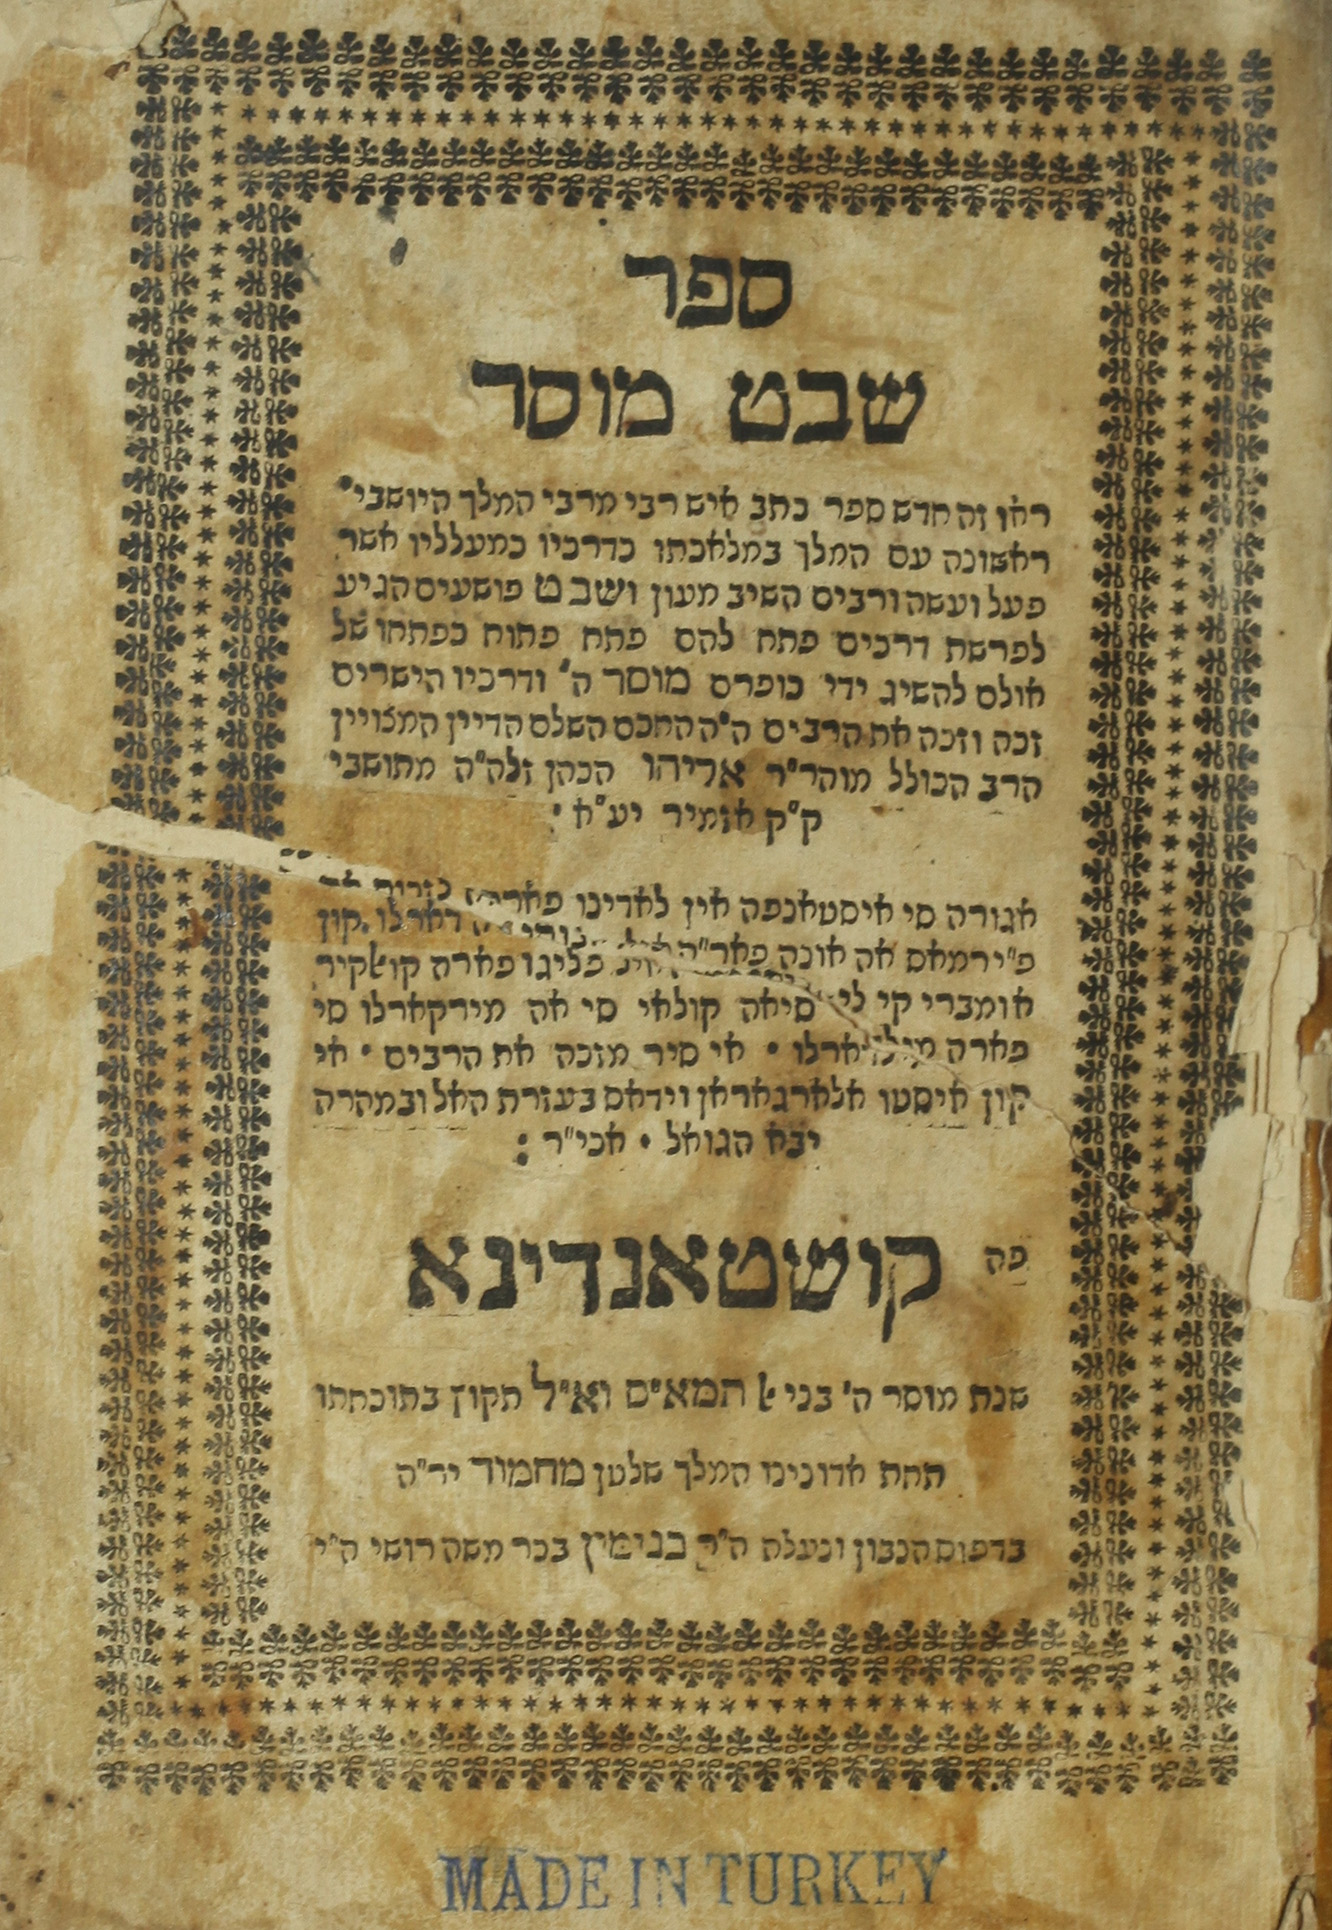 ספר
שבט מוסר
ראו זה חדש ספר כתב איש רבי מרבי המלך היושבי'
ראשונה עם המלך במלאכתו כדרכיו כמעלליו אשר
פעל ועשה ורבים השיב מעון ושבט פושעים הגיע
לפרשת דרכים פתח להם פתח פתוח כפתחו של
אולם להשיג ידי כופרם מוסר ה' ודרכיו הישרים
זכה וזכה את הרבים ה"ה החכם השלם הדיין המצויין
הרב הכולל מוהר"ר אריהו הכהן זלה"ה מתושבי
ק"ק אזמיר יע"א :
אגורה סי איסטאנפה אין לאדינו
פ"ירמאס אה אונה דארלו קון
אומברי קי פליגו פארה קואקיר
סיאה קולאי סי אה מירקארלו סי
פארה • אי סיר מזכה את הרבים • אי
קון איסטו אלארגאראן וידאס בעזרת האל ובמהרה
יבא הגואל • אכי"ר :
פה קושטאנדינא
שנת מוסר ה' בני אתמאים ואיל תקוץ בתוכחתו
תחת אדונינו המלך שלטן מחמוד יר"ה
בדפוס הנבון ונעלה ה"ר בנימין בכר משה רוסי ה"י
MADE IN TURKEY